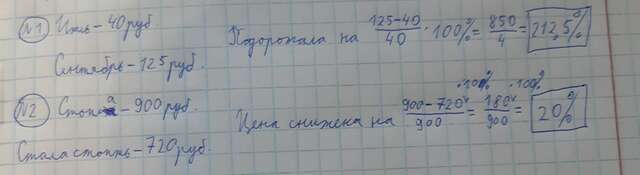 №1 Июль - 40 руб
Сентябрь - 125 руб.
Подорожала на (125-40)/40 · 100% = 850/4 = 212,5%
№2 Стоила - 900 руб.
Стала стоить - 720 руб.
Цена снижена на (900-720)/900 · 100% = 180/900 · 100% = 20%